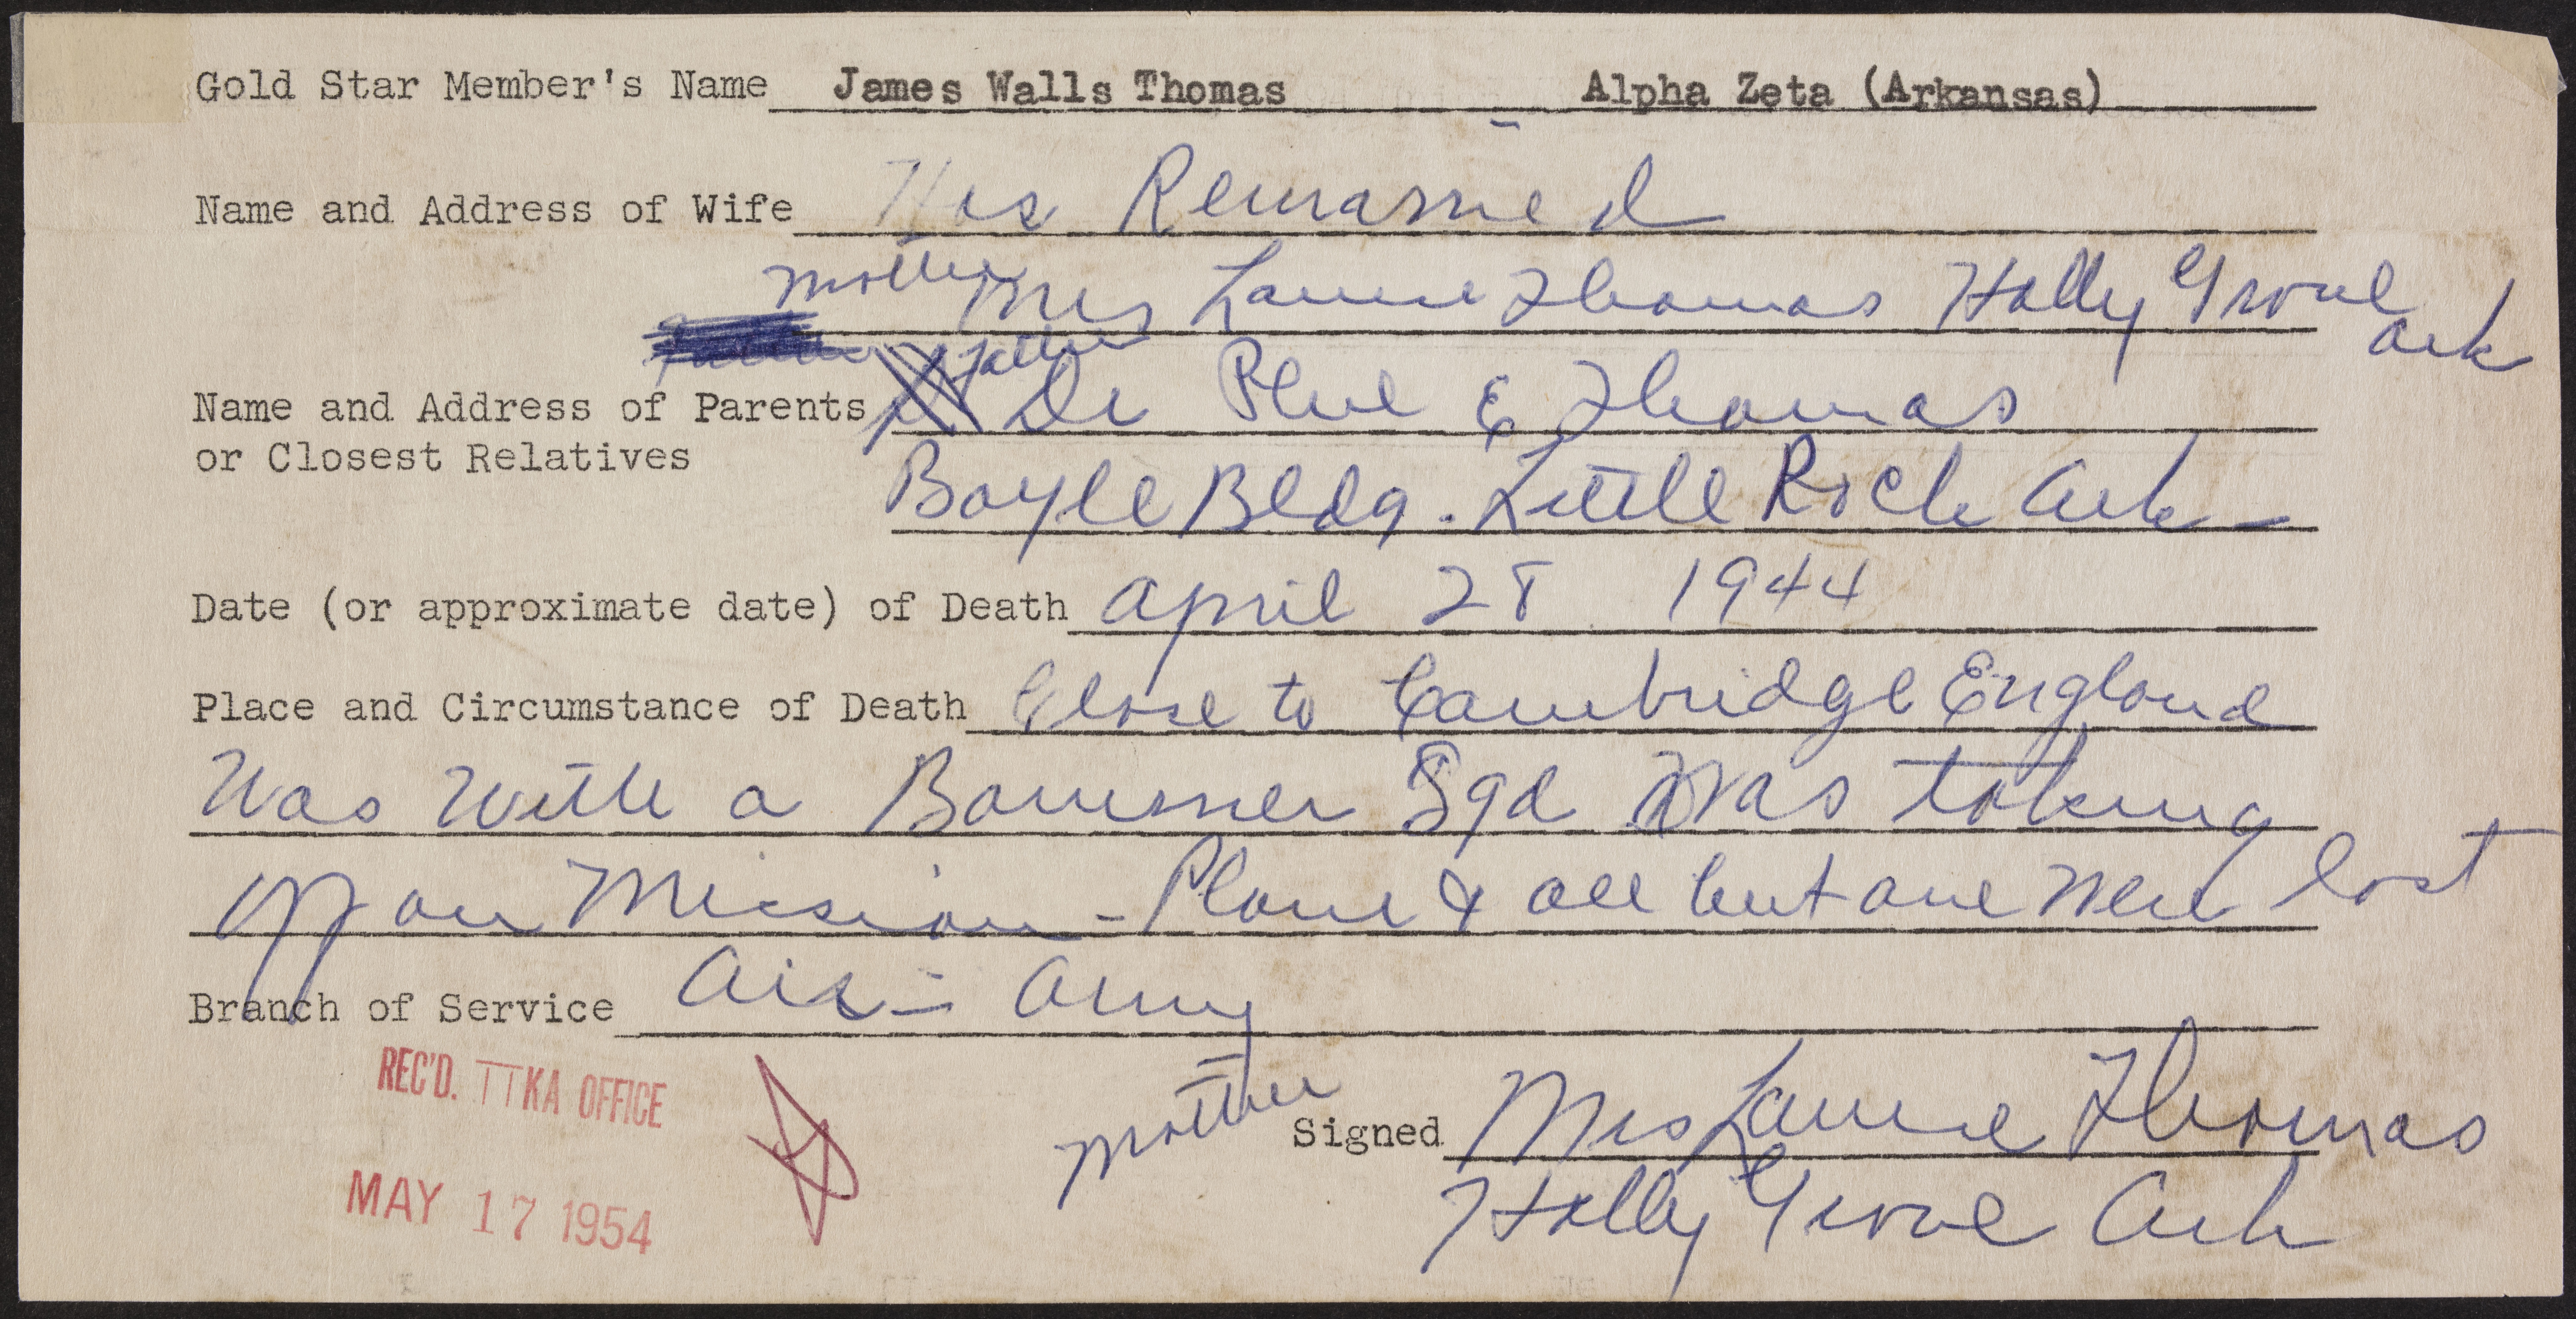 Gold Star Member's Name James Walls Thomas - Alpha Zeta (Arkansas)
Name and Address of Wife Has Remarried
Mother Mrs Laurie Thomas Holly Grove Ark
Father
Name and Address of Parents Dr Phil E Thomas
or Closest Relatives
Boyle Bldg. Little Rock Ark -
Date (or approximate date) of Death April 28 1944
Place and Circumstance of Death Close to Cambridge England
Was with a Bommer Sqd Was taking
off on Mission - Plane & all but one were lost
Branch of Service Air - Army
REC'D. TTKA OFFICE
MAY 17 1954
Mother Signed Mrs Laurie Thomas
Holly Grove Ark